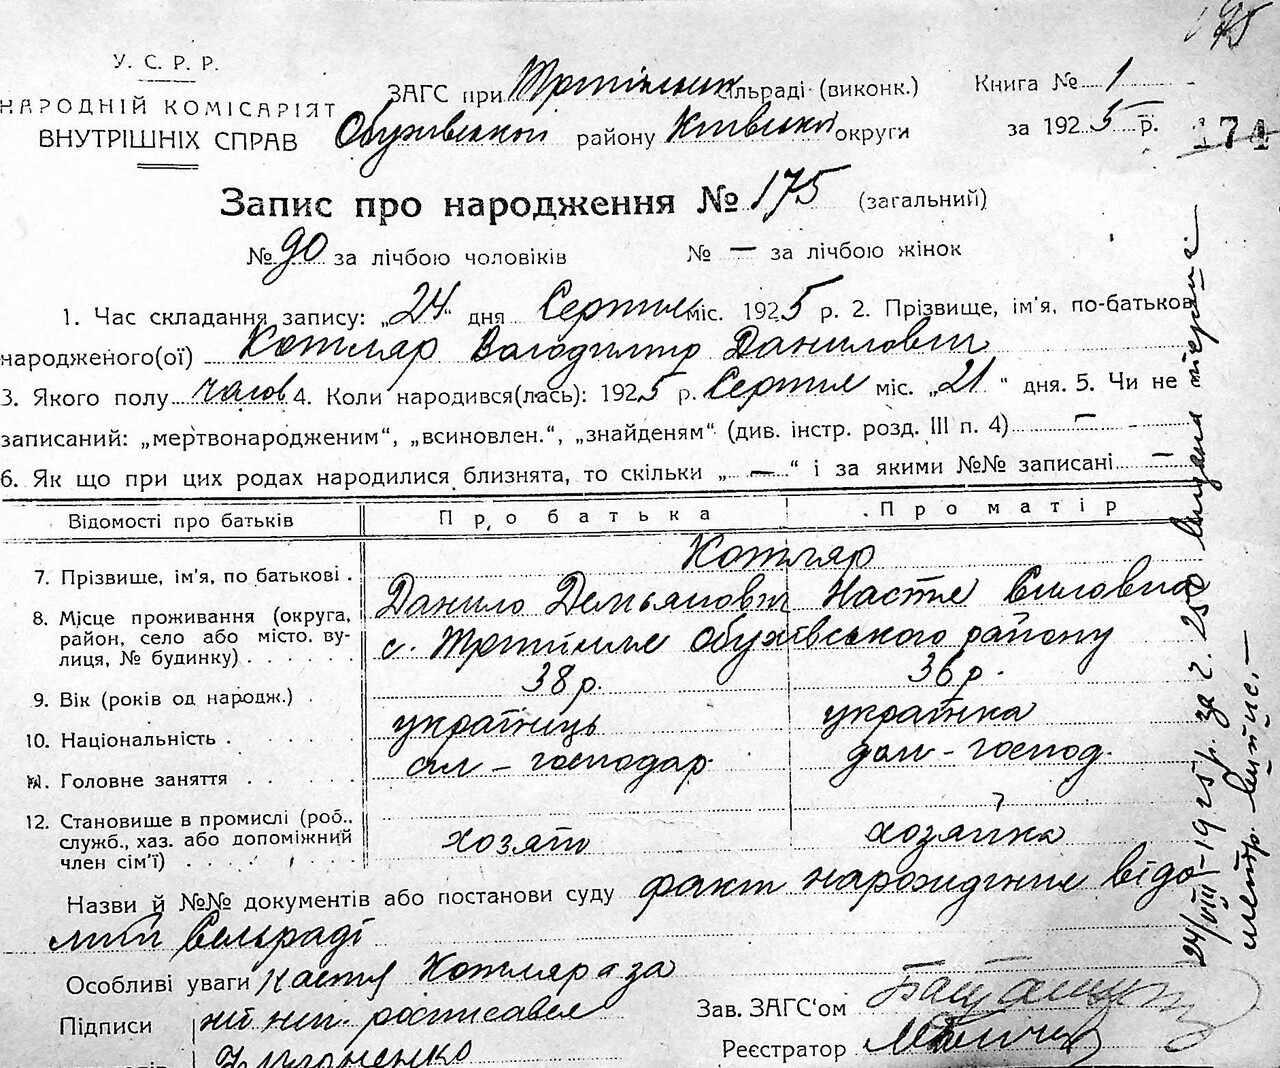 175
У. С. Р. Р.
НАРОДНІЙ КОМІСАРІЯТ
ВНУТРІШНІХ СПРАВ
ЗАГС при Трипільськ сільраді (виконк.)
Обухівської району Київської округи
Книга № 1
за 1925 р.
174
Запис про народження № 175 (загальний)
№ 90 за лічбою чоловіків № — за лічбою жінок
1. Час складання запису: „24“ дня Серпня міс. 1925 р. 2. Прізвище, ім'я, по-батькові
народженого(ої) Котляр Володимир Данилович
3. Якого полу чолов. 4. Коли народився(лась): 1925 р. Серпня міс. „21“ дня. 5. Чи не
записаний: „мертвонародженим“, „всиновлен.“, „знайденям“ (див. інстр. розд. III п. 4) —
6. Як що при цих родах народилися близнята, то скільки „—“ і за якими №№ записані —
Відомості про батьків Про батька Про матір
7. Прізвище, ім'я, по батькові . Котляр
Данило Демьянович Настя Силовна
8. Місце проживання (округа,
район, село або місто, ву-
лиця, № будинку) . . . . . .
с. Трипілля Обухівського району
9. Вік (років од народж.) . 38 р. 36 р.
10. Національність . українець українка
11. Головне заняття . . . . . сил - господар дом - господ.
12. Становище в промислі (роб.,
служб., хаз. або допоміжний
член сім'ї) . . . . . . .
хозяїн хозяйка
Назви й №№ документів або постанови суду факт народження відо
мий Сельраді
Особливі уваги Настя Котляр а за
Підписи неї неп. росписався
Зав. ЗАГС'ом
Реєстратор
24/VIII-1925 р. за ч. 250 видана
метр. випис. —